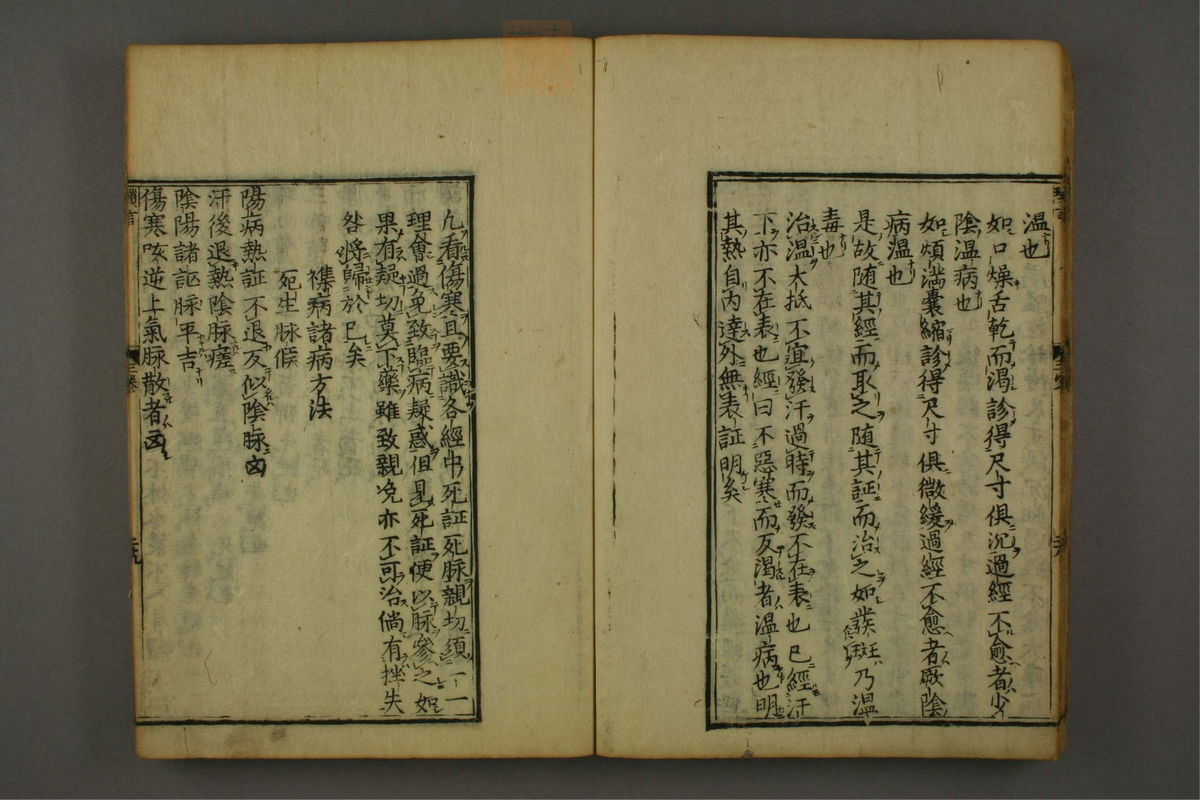 温也
如口燥舌乾而渴診得尺寸俱沉過經不愈者少
陰温病也
如煩満囊縮診得尺寸俱微緩過經不愈者厥陰
病温也
是故随其經而取之随其証而治之如發斑乃温
毒也
治温大抵不宜發汗過時而發不在表也已經汗
下亦不在表也經曰不惡寒而反渴者温病也明
其熱自內達外無表証明矣
凢看傷寒且要識各經中死証死脉親切須一一
理會過免致臨病疑惑但見死証便以脉參之如
果有疑切莫下藥雖致親免亦不可治倘有挫失
咎將歸於已矣
襍病諸病方法
死生脉候
陽病熱証不退反似陰脉凶
汗後退熱陰脉瘥
陰陽諸証脉平吉
傷寒咳逆上氣脉散者凶